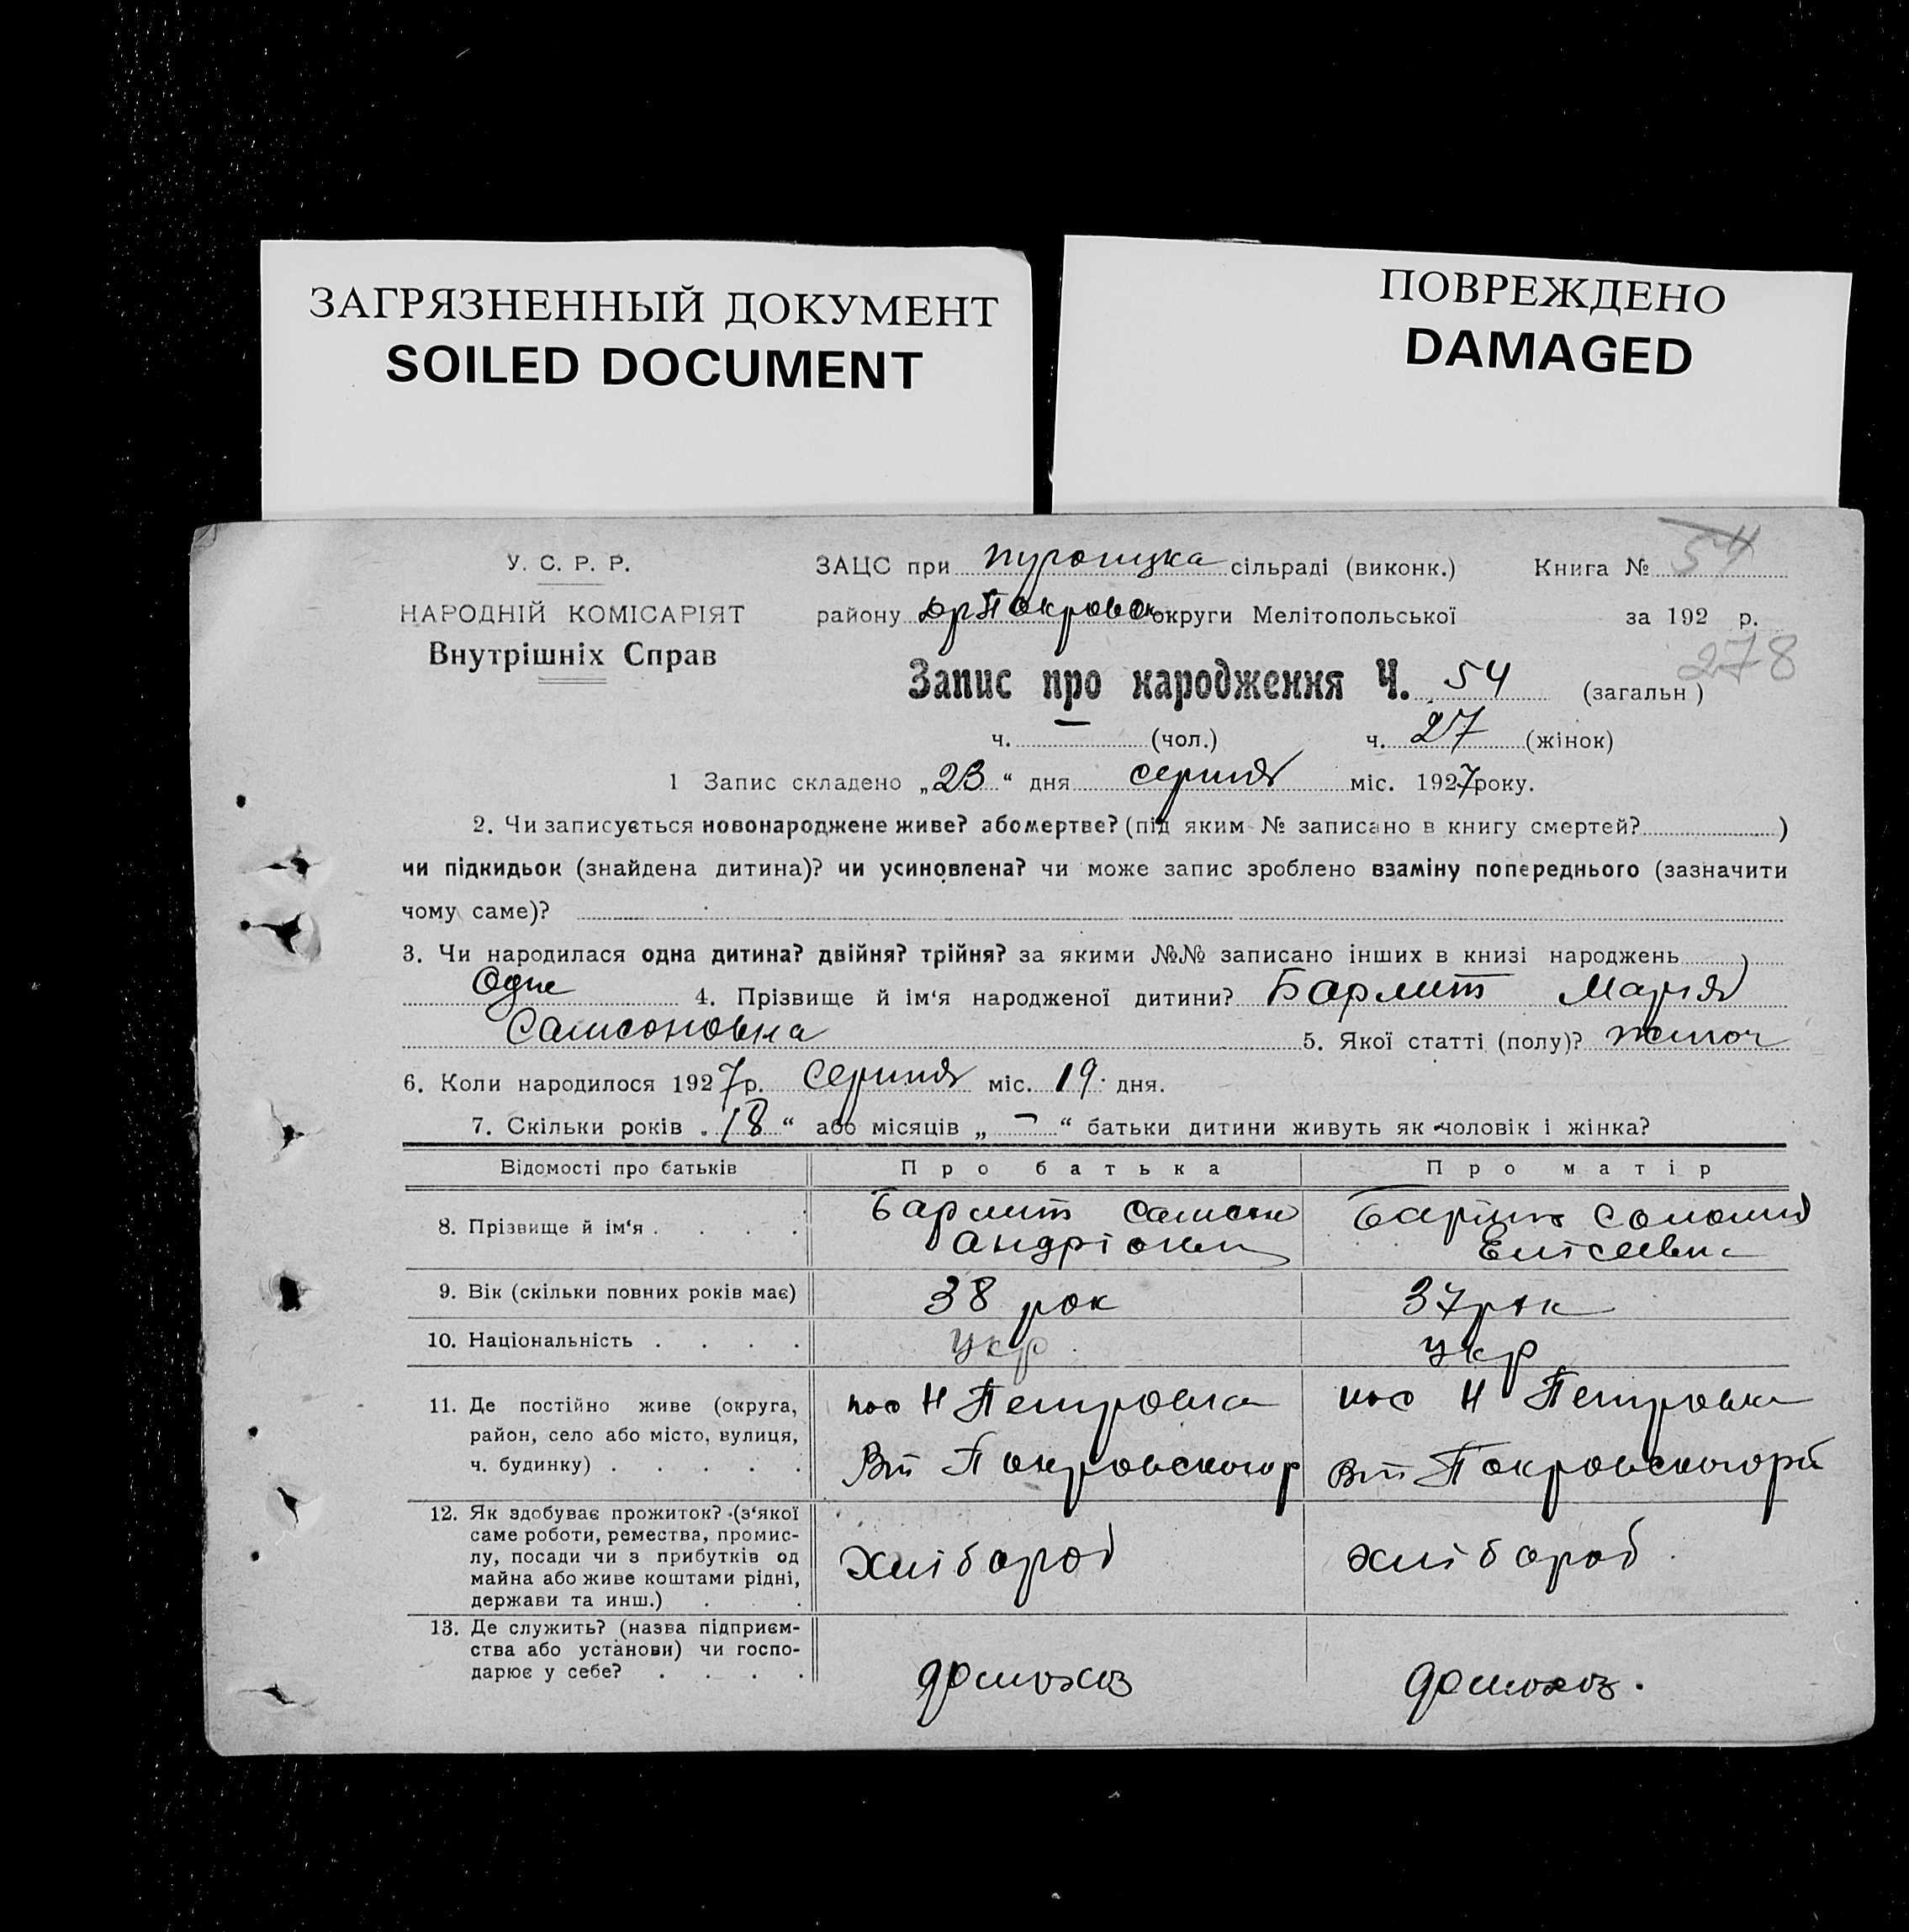 ЗАГРЯЗНЕННЫЙ ДОКУМЕНТ
SOILED DOCUMENT
ПОВРЕЖДЕНО
DAMAGED
У. С. Р. Р.
НАРОДНІЙ КОМІСАРІЯТ
Внутрішніх Справ
ЗАЦС при сільраді (виконк.) Книга № 54
району Покровск округи Мелітопольської за 192 р.
278
Запис про народження Ч. 54 (загальн)
ч. — (чол.) ч. 27 (жінок)
1 Запис складено „23“ дня серпня міс. 1927 року.
2. Чи записується новонароджене живе? або мертве? (під яким № записано в книгу смертей? )
чи підкидьок (знайдена дитина)? чи усиновлена? чи може запис зроблено взаміну попереднього (зазначити
чому саме)?
3. Чи народилася одна дитина? двійня? трійня? за якими №№ записано інших в книзі народжень
Одне 4. Прізвище й ім‘я народженої дитини? Бармит Марія
Самсоновна 5. Якої статті (полу)? жиноч
6. Коли народилося 1927 р. Серпня міс. 19 дня.
7. Скільки років „18“ або місяців „—“ батьки дитини живуть як чоловік і жінка?
Відомості про батьків Про батька Про матір
8. Прізвище й ім‘я . . . . Бармит Самсон
Андріович Елісеевна
9. Вік (скільки повних років має) 38 рок 37 рок
10. Національність . . . . укр укр
11. Де постійно живе (округа,
район, село або місто, вулиця,
ч. будинку) . . . . .
пос Н Петровка пос Н Петровка
Вт Покровского р Вт Покровского рн
12. Як здобуває прожиток? (з‘якої
саме роботи, ремества, промис-
лу, посади чи з прибутків од
майна або живе коштами рідні,
держави та инш.) . .
хлібороб хлібороб
13. Де служить? (назва підприєм-
ства або установи) чи госпо-
дарює у себе? . . . .
домохоз домохоз.